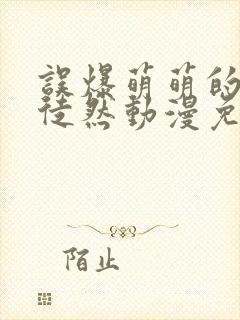 誤爆萌萌的
徒然動漫免
陌止